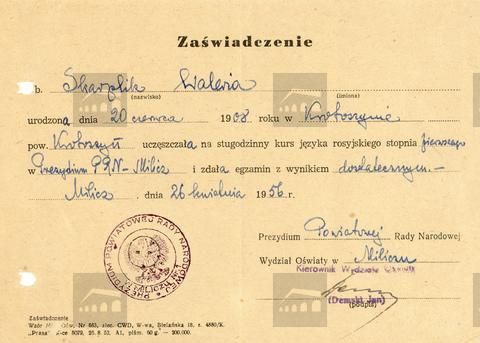 Zaświadczenie
b. Skarplik Waleria
(nazwisko) (imiona)
urodzona dnia 20 czerwca 1908 roku w Krotoszynie
pow. Krotoszyn uczęszczała na stugodzinny kurs języka rosyjskiego stopnia pierwszego
w Prezydium PRN - Milicz i zdała egzamin z wynikiem dostatecznym.-
Milicz, dnia 26 kwietnia 1956 r.
Prezydium Powiatowej Rady Narodowej
Wydział Oświaty w Miliczu
Kierownik Wydziału Oświaty
(Demski Jan)
(podpis)
PREZYDIUM POWIATOWEJ RADY NARODOWEJ
W MILICZU
Zaświadczenie
Nr 563, zlec. CWD, W-wa, Bielańska 18, z. 4880/K.
"Prasa" 5079, 26. 8. 52. A1, piśm. 60 g. — 200.000.